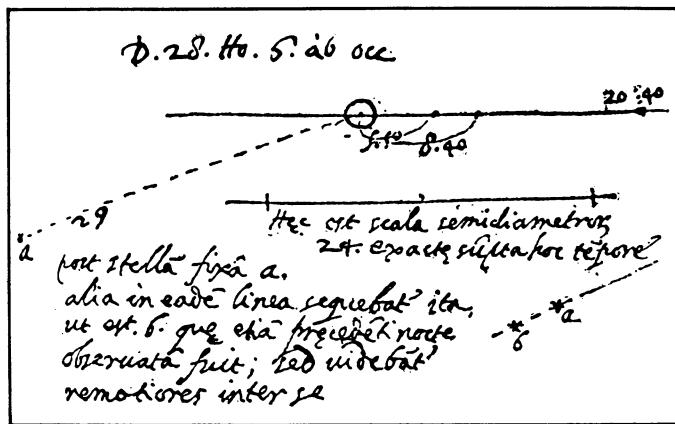 D. 28. Ho. 6. ab occ
20 : 40
5.10 8.40
29
a
Hęc est scala semidiametroꝝ
24. exactę sūpta hoc tēpore
post stellā fixā a.
alia in eadē linea sequebat' ita,
ut est .b. quę etiā pręcedēti nocte
obseruata fuit; sed uidebāt'
remotiores inter se
b a